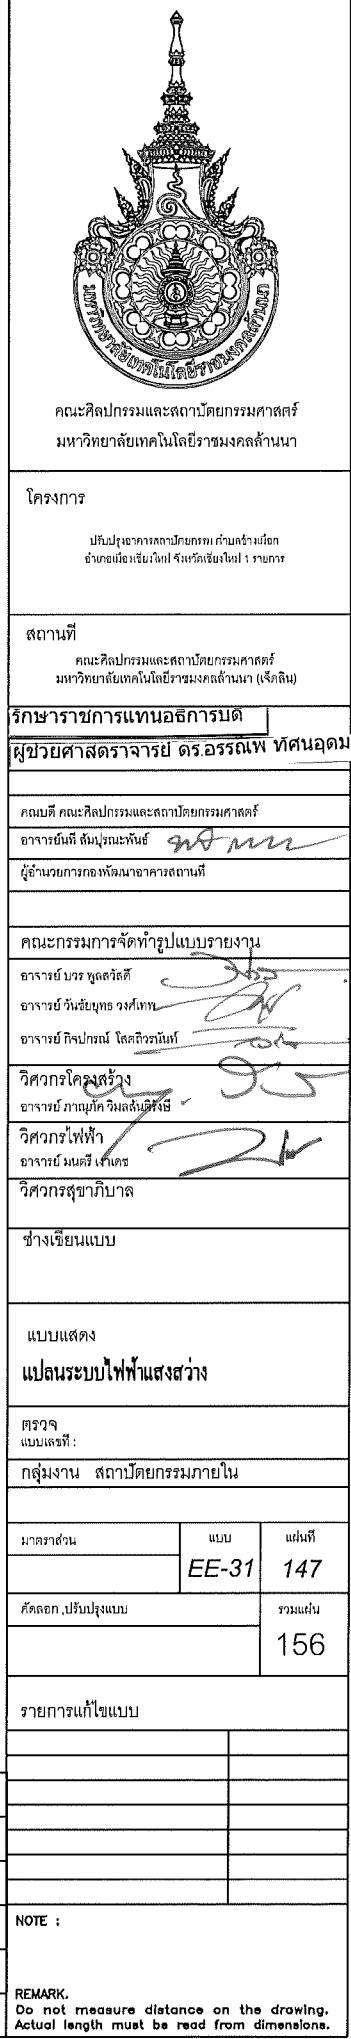 มหาวิทยาลัยเทคโนโลยีราชมงคลล้านนา
คณะศิลปกรรมและสถาปัตยกรรมศาสตร์
มหาวิทยาลัยเทคโนโลยีราชมงคลล้านนา
โครงการ
ปรับปรุงอาคารสถาปัตยกรรม ตำบลช้างเผือก
อำเภอเมืองเชียงใหม่ จังหวัดเชียงใหม่ 1 รายการ
สถานที่
คณะศิลปกรรมและสถาปัตยกรรมศาสตร์
มหาวิทยาลัยเทคโนโลยีราชมงคลล้านนา (เจ็ดลิน)
รักษาราชการแทนอธิการบดี
ผู้ช่วยศาสตราจารย์ ดร.อรรณพ ทัศนอุดม
คณบดี คณะศิลปกรรมและสถาปัตยกรรมศาสตร์
อาจารย์นที สัมปุรณะพันธ์
ผู้อำนวยการกองพัฒนาอาคารสถานที่
คณะกรรมการจัดทำรูปแบบรายงาน
อาจารย์ บวร พูลสวัสดิ์
อาจารย์ วันชัยยุทธ วงศ์เทพ
อาจารย์ กิจปกรณ์ โสตถิวรนันท์
วิศวกรโครงสร้าง
อาจารย์ ภาณุภัค
วิศวกรไฟฟ้า
อาจารย์ มนตรี เงาเดช
วิศวกรสุขาภิบาล
ช่างเขียนแบบ
แบบแสดง
แปลนระบบไฟฟ้าแสงสว่าง
ตรวจ
แบบเลขที่ :
กลุ่มงาน สถาปัตยกรรมภายใน
มาตราส่วน แบบ แผ่นที่
EE-31 147
คัดลอก ,ปรับปรุงแบบ รวมแผ่น
156
รายการแก้ไขแบบ
NOTE :
REMARK.
Do not measure distance on the drawing.
Actual length must be read from dimensions.